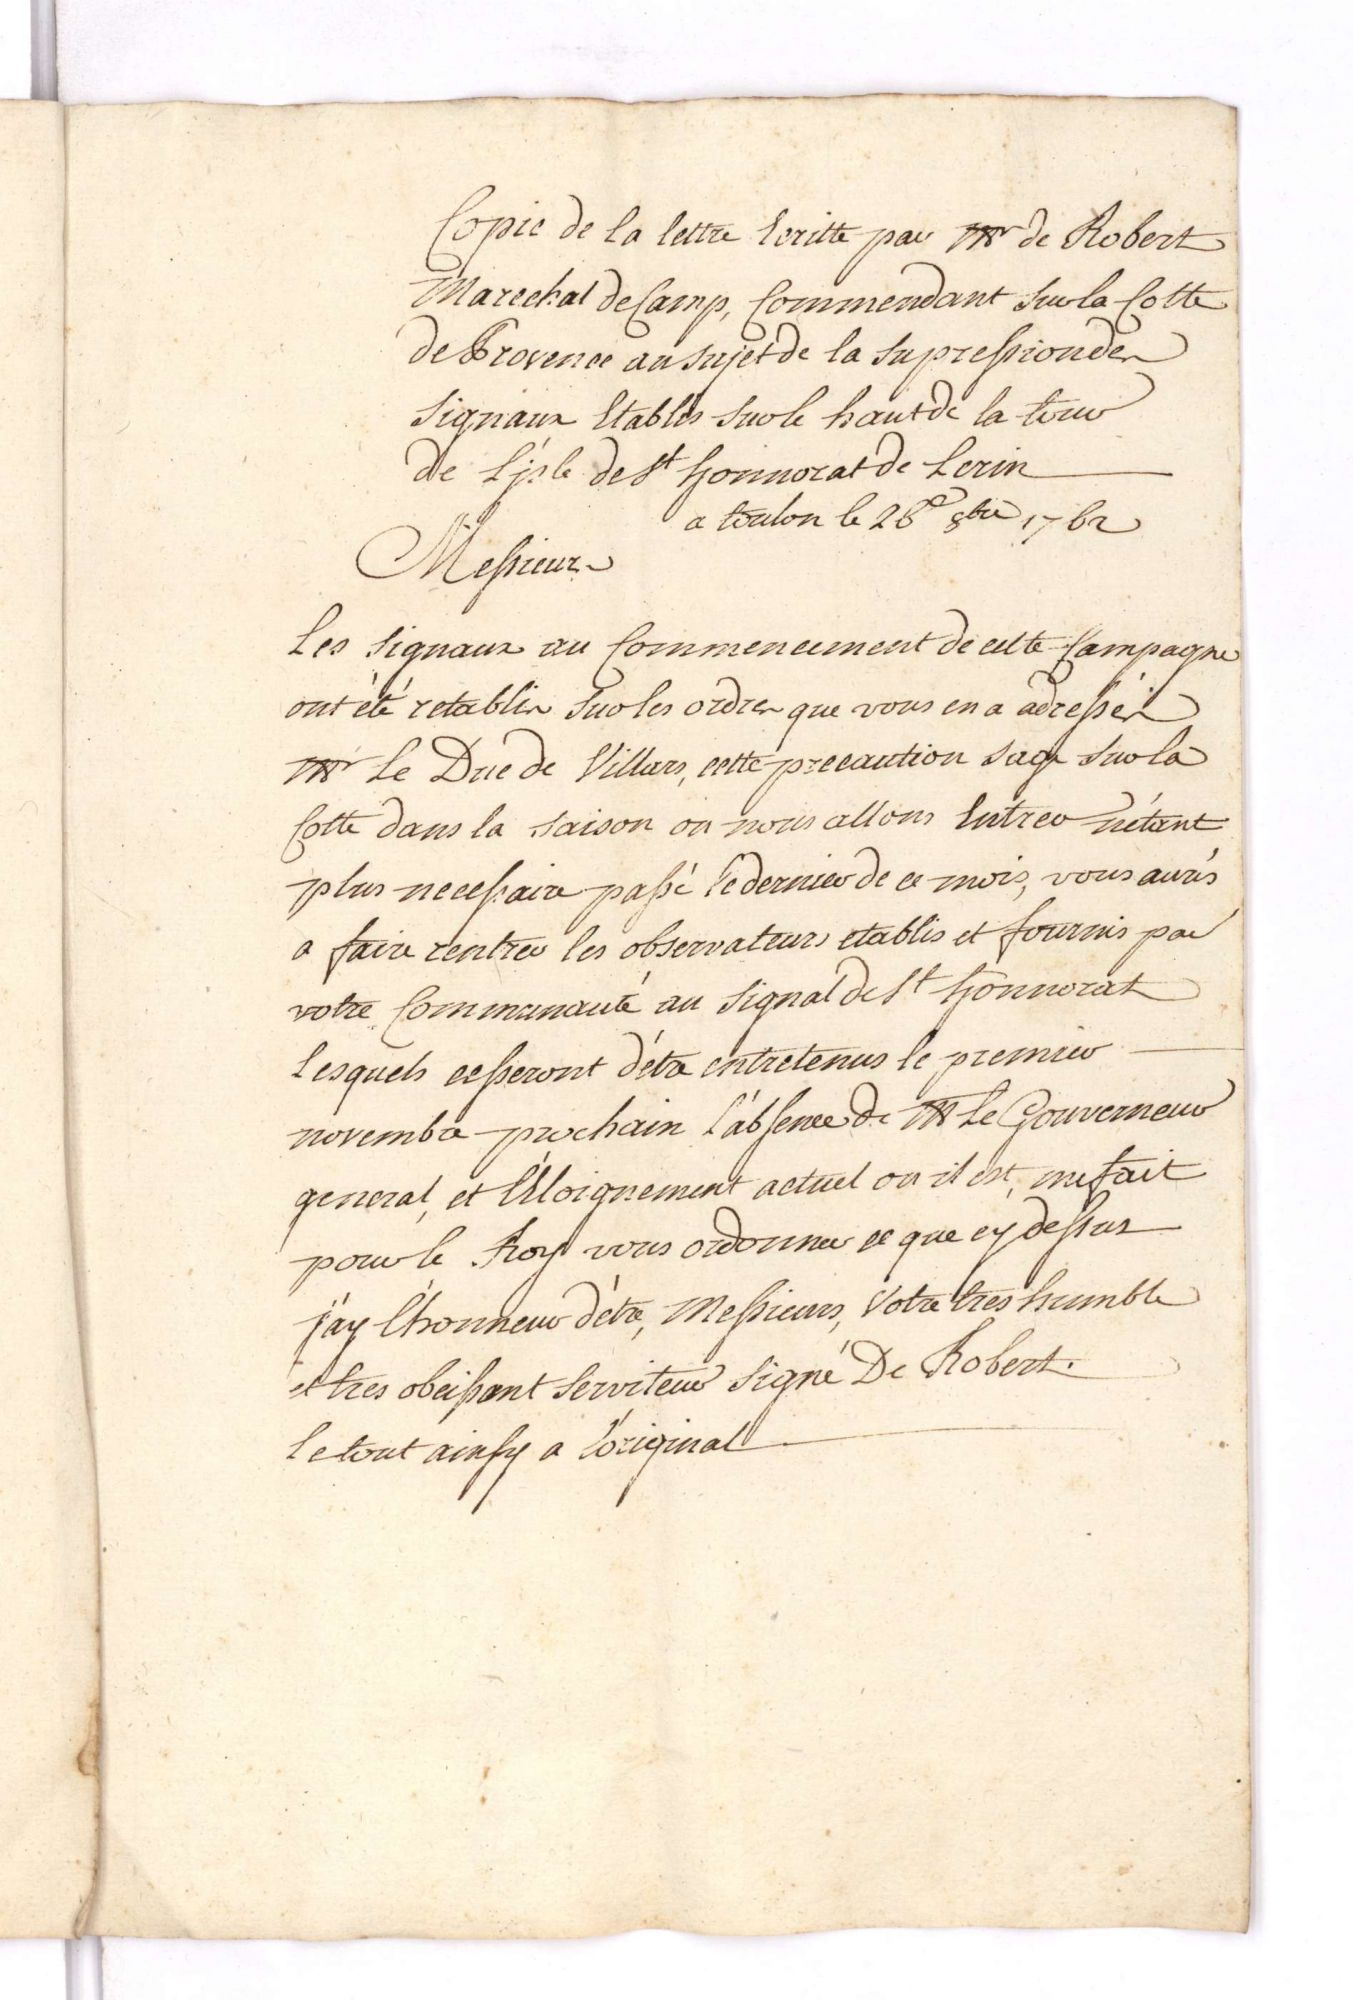 Copie de la lettre Ecritte par Mr de Robert
Marechal de Camp, Commendant sur la Cotte
de Provence au sujet de la supression des
signaux Etablis sur le haut de la tour
de L'jsle de St honnorat de Lerin
a toulon le 26e 8bre 1762
Messieurs
Les signaux au Commencement de cette Campagne
ont été retablis sur les ordres que vous en a adressés
Mr Le Duc de Villars, cette precaution sage sur la
Cotte dans la saison ou nous allons Entrer n'étant
plus necessaire passé le dernier de ce mois, vous aurés
a faire rentrer les observateurs etablis et fournis par
votre Communauté au signal de St honnorat
Lesquels cesseront d'être entretenus le premier
novembre prochain L'absence de Mr Le Gouverneur
general, et L'Eloignement actuel ou il est, me fait
pour le Roy vous ordonner ce que cy dessus
j'ay L'honneur d'être, Messieurs, Votre tres humble
et tres obeissant serviteur signé De Robert.
Le tout ainsy a L'original